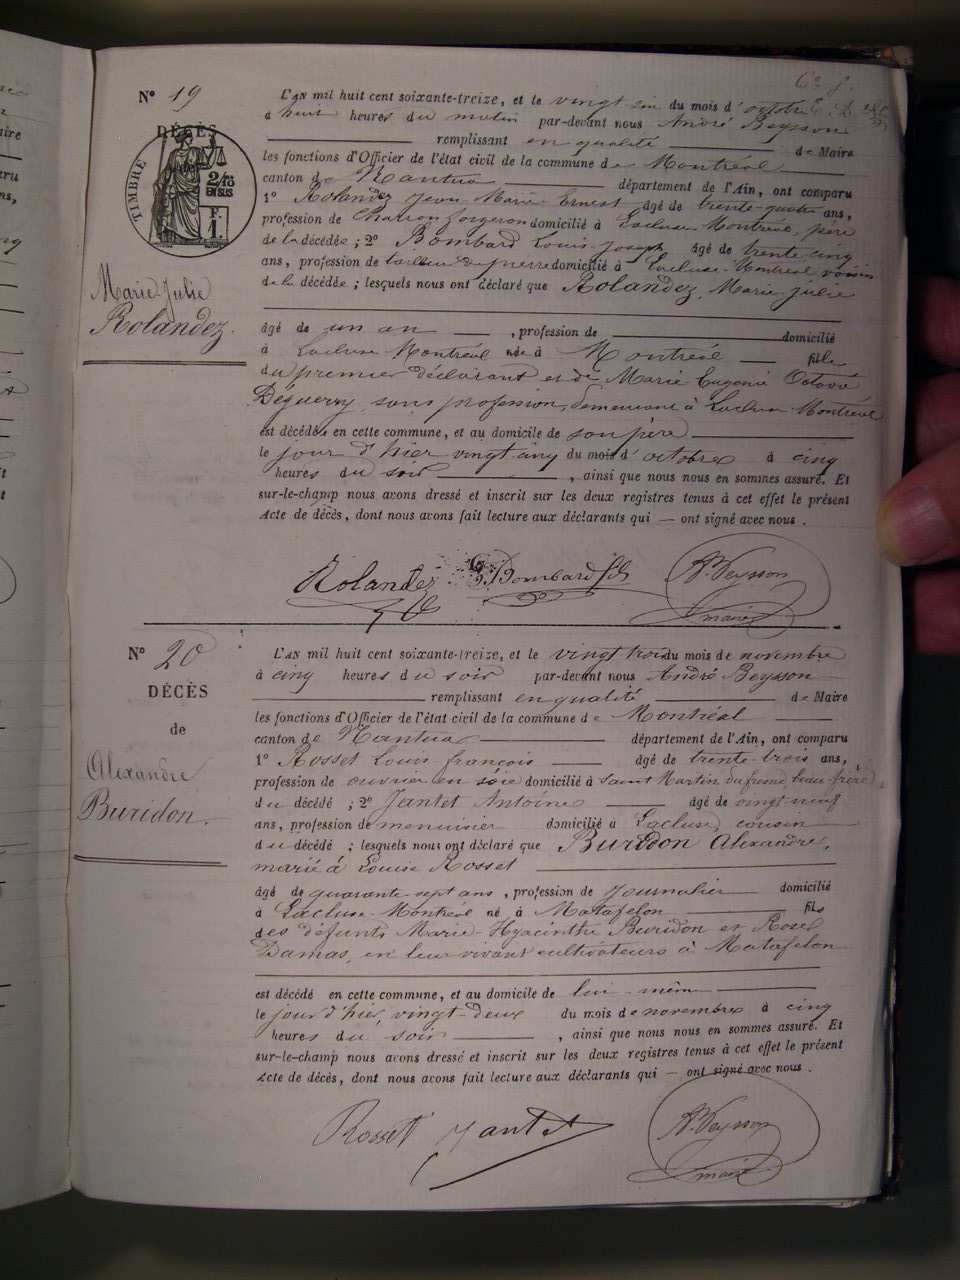 N° 19
DÉCÈS
de
TIMBRE
2/10
EN SUS
F.
1.
Marie Julie
Rolandez.
L'AN mil huit cent soixante-treize, et le vingt six du mois d'octobre
à huit heures du matin par-devant nous André Beysson
remplissant en qualité de Maire
les fonctions d'Officier de l'état civil de la commune de Montréal
canton de Nantua département de l'Ain, ont comparu
1° Rolandez Jean Marie Ernest âgé de trente-quatre ans,
profession de Charron forgeron domicilié à Lacluse Montréal, père
de la décédée ; 2° Bombard Louis Joseph âgé de trente cinq
ans, profession de tailleur de pierre domicilié à Lacluse-Montréal voisin
de la décédée ; lesquels nous ont déclaré que Rolandez, Marie Julie
âgé de un an , profession de domicilié
à Lacluse Montréal née à Montréal fille
du premier déclarant et de Marie Eugénie Octavie
Déguerry, sans profession, demeurant à Lacluse Montréal
est décédée en cette commune, et au domicile de son père
le jour d'hier vingt cinq du mois d'octobre à cinq
heures du soir , ainsi que nous nous en sommes assuré. Et
sur-le-champ nous avons dressé et inscrit sur les deux registres tenus à cet effet le présent
Acte de décès, dont nous avons fait lecture aux déclarants qui — ont signé avec nous .
Rolandez Bombard A. Beysson
maire
N° 20
DÉCÈS
de
Alexandre
Buridon.
L'AN mil huit cent soixante-treize, et le vingt trois du mois de novembre
à cinq heures du soir par-devant nous André Beysson
remplissant en qualité de Maire
les fonctions d'Officier de l'état civil de la commune de Montréal
canton de Nantua département de l'Ain, ont comparu
1° Rosset Louis françois âgé de trente-trois ans,
profession de ouvrier en soie domicilié à Saint Martin du fresne, beau-frère
du décédé ; 2° Jantet Antoine âgé de vingt-neuf
ans, profession de menuisier domicilié à Lacluse, cousin
du décédé ; lesquels nous ont déclaré que Buridon Alexandre,
marié à Louise Rosset
âgé de quarante-sept ans , profession de Journalier domicilié
à Lacluse-Montréal né à Matafelon fils
des défunts Marie-Hyacinthe Buridon et Rosel
Damas, en leur vivant cultivateurs à Matafelon
est décédé en cette commune, et au domicile de lui-même
le jour d'hier, vingt-deux du mois de novembre à cinq
heures du soir , ainsi que nous nous en sommes assuré. Et
sur-le-champ nous avons dressé et inscrit sur les deux registres tenus à cet effet le présent
Acte de décès, dont nous avons fait lecture aux déclarants qui — ont signé avec nous .
Rosset Jantet A. Beysson
maire